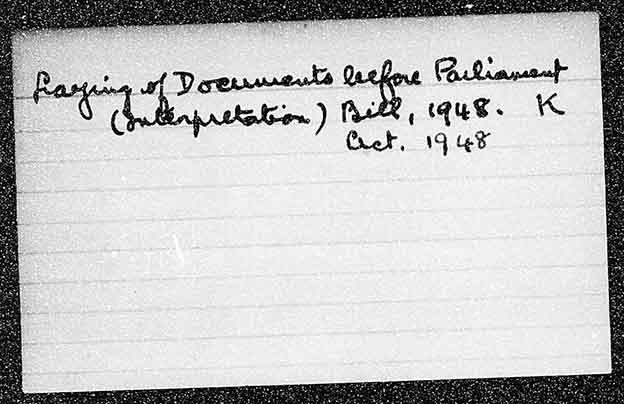 Laying of Documents before Parliament
(Interpretation) Bill, 1948. K
Act. 1948